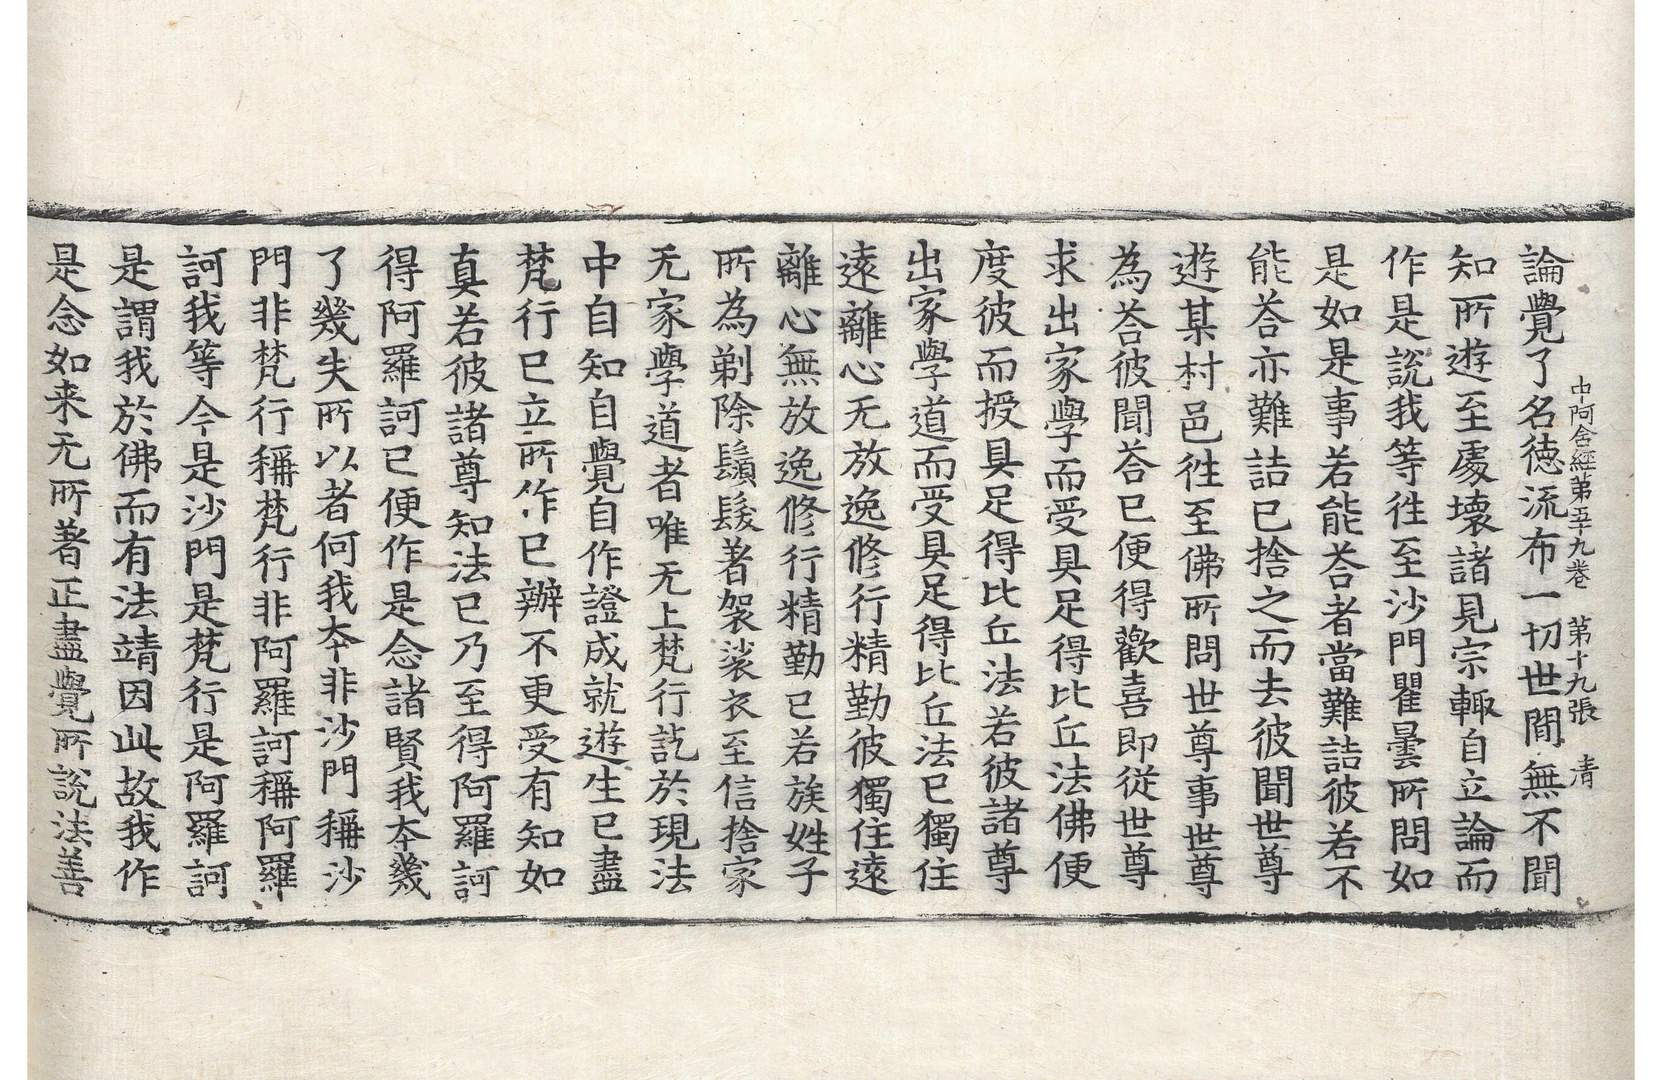 中阿含經第五十九卷　第十九張　清
論覺了名德流布一切世間無不聞
知所遊至處壞諸見宗輒自立論而
作是說我等往至沙門瞿曇所問如
是如是事若能荅者當難詰彼若不
能荅亦難詰已捨之而去彼聞世尊
遊某村邑往至佛所問世尊事世尊
為荅彼聞荅已便得歡喜即從世尊
求出家學而受具足得比丘法佛便
度彼而授具足得比丘法若彼諸尊
出家學道而受具足得比丘法已獨住
遠離心无放逸修行精勤彼獨住遠
離心無放逸修行精勤已若族姓子
所為剃除鬚髮著袈裟衣至信捨家
无家學道者唯无上梵行訖於現法
中自知自覺自作證成就遊生已盡
梵行已立所作已辦不更受有知如
真若彼諸尊知法已乃至得阿羅訶
得阿羅訶已便作是念諸賢我夲幾
了幾失所以者何我夲非沙門稱沙
門非梵行稱梵行非阿羅訶稱阿羅
訶我等今是沙門是梵行是阿羅訶
是謂我於佛而有法靖因此故我作
是念如来无所著正盡覺所說法善